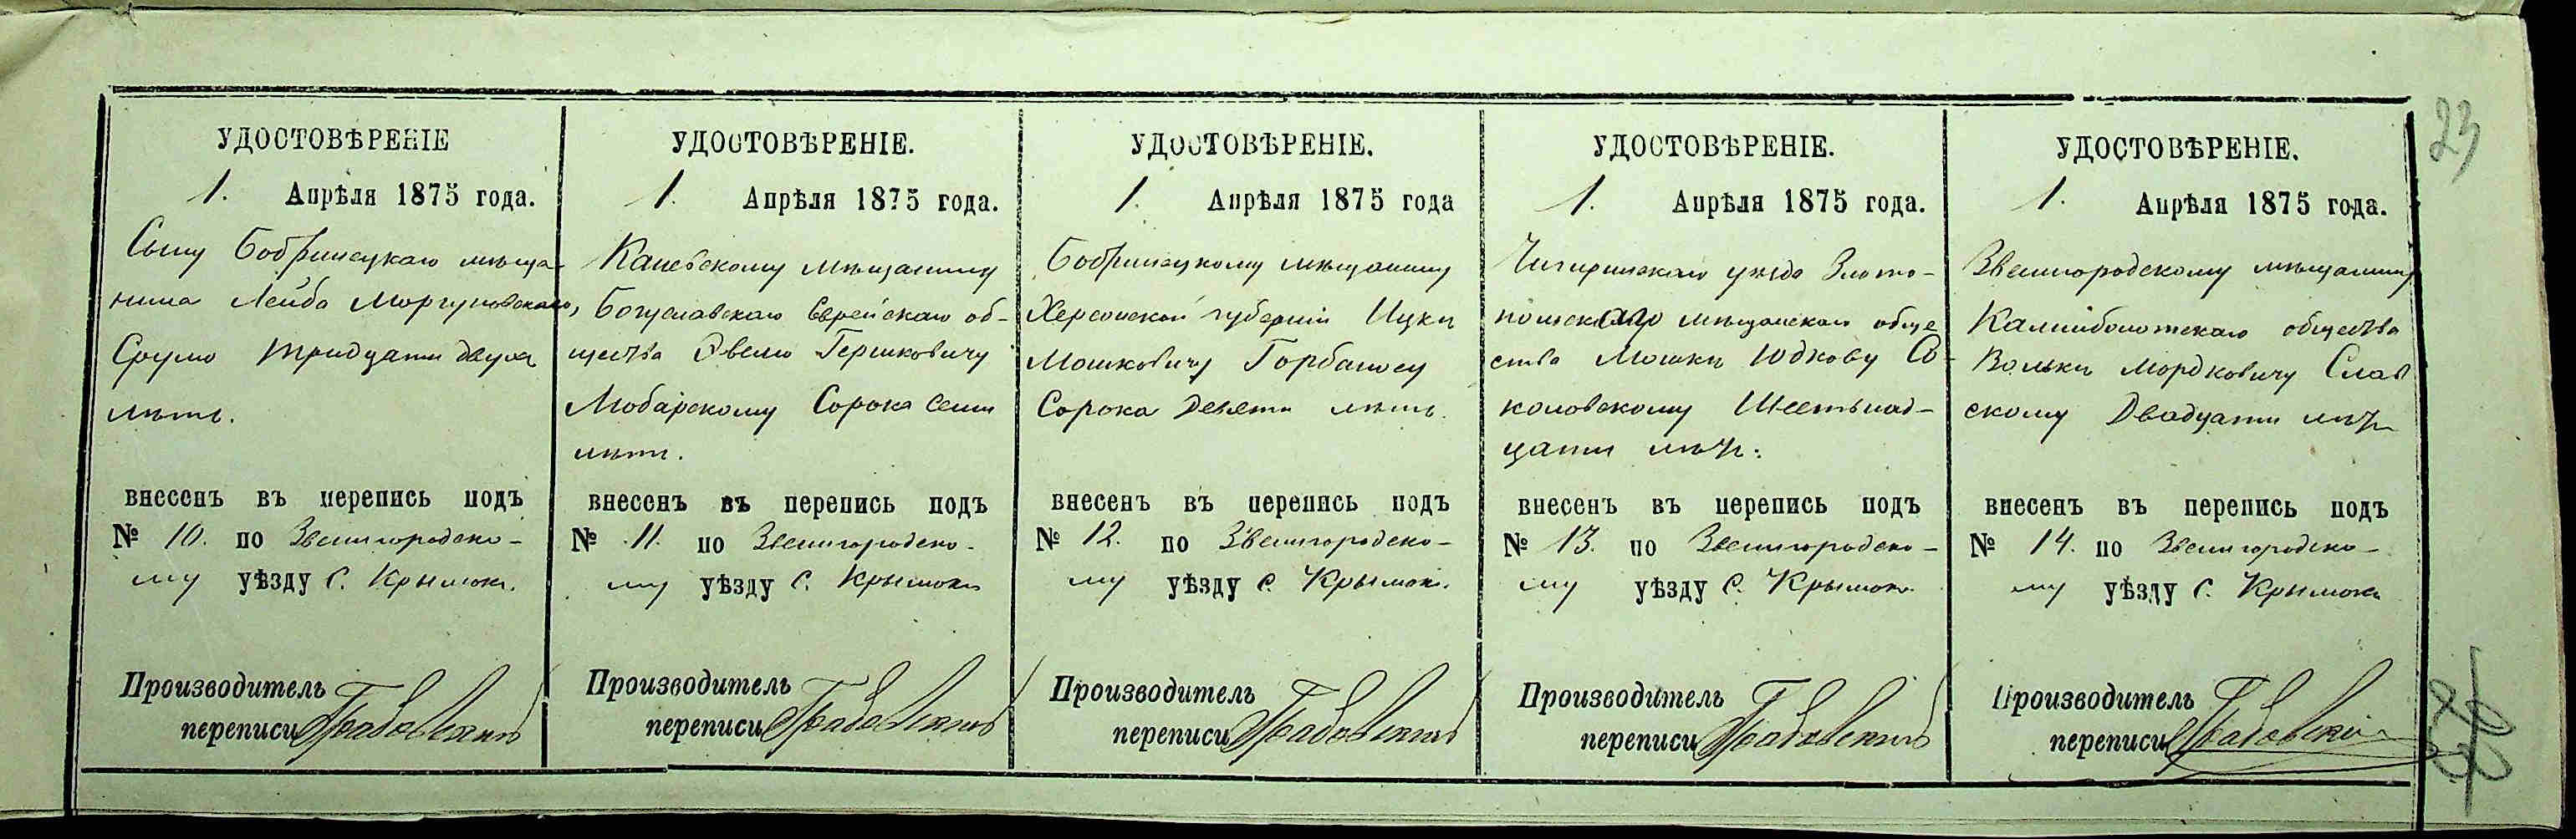 УДОСТОВѢРЕНІЕ
1. Апрѣля 1875 года.
Сыну Бобринецкаго мѣща-
нина Лейба Моргуновскаго,
Срулю тридцати двухъ
лѣтъ.
внесенъ въ перепись подъ
№ 10. по Звенигородско-
му уѣзду с. Крымки.
Производитель
переписи Грабовскій
УДОСТОВѢРЕНІЕ.
1. Апрѣля 1875 года.
Каневскому мѣщанину
Богуславскаго Еврейскаго об-
щества Эвелю Гершковичу
Любарскому Сорока семи
лѣтъ.
внесенъ въ перепись подъ
№ 11. по Звенигородско-
му уѣзду с. Крымки
Производитель
переписи Грабовскій
УДОСТОВѢРЕНІЕ.
1. Апрѣля 1875 года
Бобринецкому мѣщанину
Херсонской губерніи Ицки
Мошковичу Горбатюсу
Сорока девяти лѣтъ.
внесенъ въ перепись подъ
№ 12. по Звенигородско-
му уѣзду с. Крымки.
Производитель
переписи Грабовскій
УДОСТОВѢРЕНІЕ.
1. Апрѣля 1875 года.
Чигиринскаго уѣзда Злато-
польскаго мѣщанскаго обще-
ства Мошки Юдкову Со-
коловскому Шестьнад-
цати лѣтъ.
внесенъ въ перепись подъ
№ 13. по Звенигородско-
му уѣзду с. Крымки
Производитель
переписи Грабовскій
УДОСТОВѢРЕНІЕ.
1. Апрѣля 1875 года.
Звенигородскому мѣщанину
Калниболотскаго общества
Вольки Мордковичу Слав
скому Двадцати лѣтъ
внесенъ въ перепись подъ
№ 14. по Звенигородско-
му уѣзду с. Крымки
Производитель
переписи Грабовскій
23